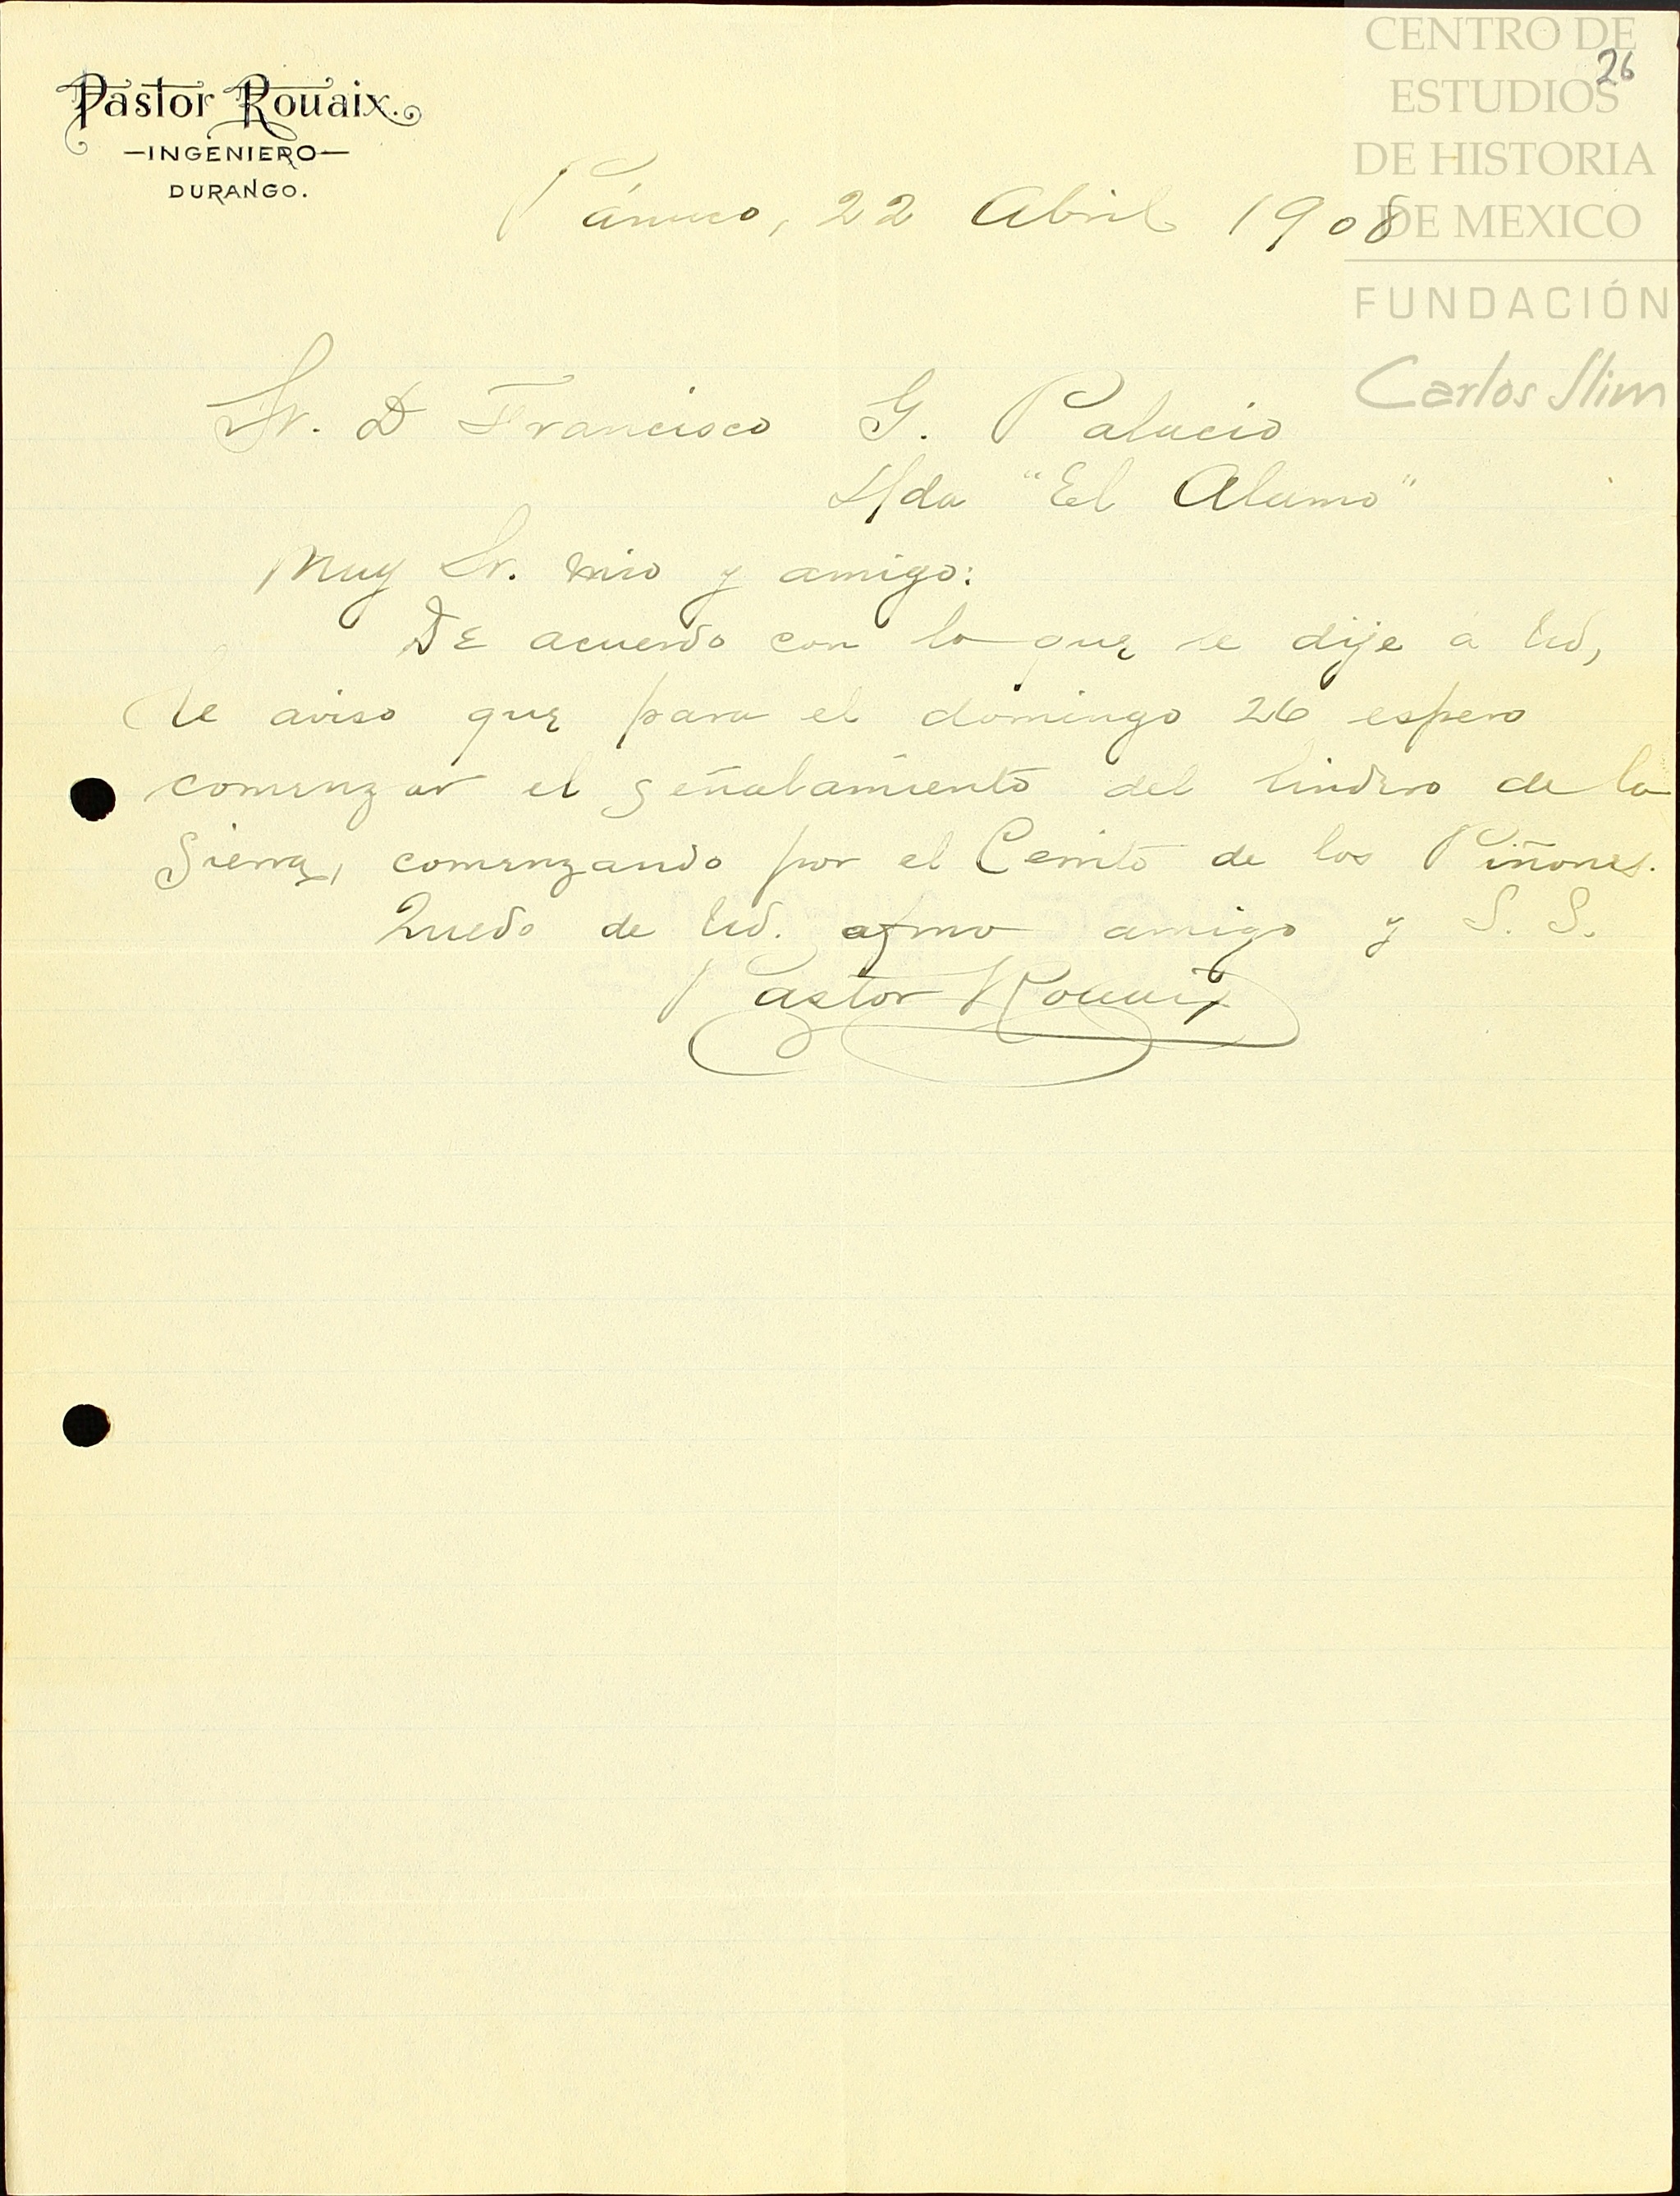 CENTRO DE
ESTUDIOS
DE HISTORIA
DE MEXICO
FUNDACIÓN
Carlos Slim
26
Pastor Rouaix.
—INGENIERO—
DURANGO.
Pánuco, 22 Abril 1908
Sr. D Francisco G. Palacio
Hda "El Alamo"
Muy Sr. mio y amigo:
De acuerdo con lo que se dije á Ud,
le aviso que para el domingo 26 espero
comenzar el señalamiento del lindero de la
Sierra, comenzando por el Cerrito de los Piñones.
Quedo de Ud. afmo amigo y S. S.
Pastor Rouaix